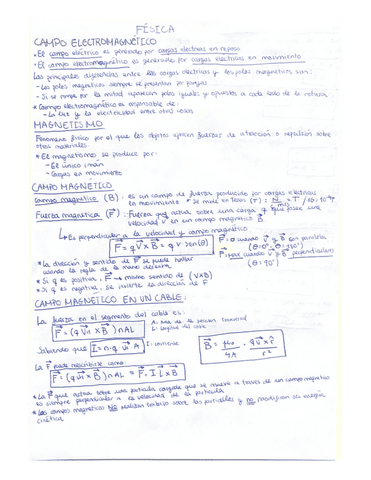 FÍSICA
CAMPO ELECTROMAGNÉTICO
• El campo eléctrico es generado por cargas eléctricas en reposo
• El campo electromagnético es generado por cargas eléctricas en movimiento
Las principales diferencias entre las cargas eléctricas y los polos magnéticos son:
- Los polos magnéticos siempre se presentan por parejas
- Si se rompe por la mitad aparecen polos iguales y opuestos a cada lado de la rotura
* Campo electromagnético es responsable de:
- La luz y la electricidad entre otras cosas
MAGNETISMO
Fenómeno físico por el que los objetos ejercen fuerzas de atracción o repulsión sobre
otros materiales.
* El magnetismo se produce por:
- El único imán
- Cargas en movimiento
CAMPO MAGNÉTICO
Campo magnético (B): es un campo de fuerza producido por cargas eléctricas
en movimiento * Se mide en Teslas (T)
Fuerza magnética (F): Fuerza que actúa sobre una carga q que posee una
velocidad v en un campo magnético B
↳ Es perpendicular a la velocidad y campo magnético
F = q v x B = q v sen(θ)
F = 0 cuando v y B son paralela
(θ = 0°, θ = 180°)
F = MAX cuando v y B perpendiculares
(θ = 90°)
* La dirección y sentido de F se puede hallar
cuando la regla de la mano derecha
* Si q es positiva: F → mismo sentido de (V x B)
* Si q es negativa: Se invierte la dirección de F
CAMPO MAGNÉTICO EN UN CABLE:
La fuerza en el segmento del cable es:
F = (q v x B) n A L
Sabiendo que I = n · q v A
I: corriente
La F puede reescribirse como
F = (q v x B) n A L = F = I L x B
* La F que actúa sobre una partícula cargada que se mueve a través de un campo magnético
es siempre perpendicular a la velocidad de la partícula
* Los campos magnéticos NO realizan trabajo sobre las partículas y no modifican su energía
cinética